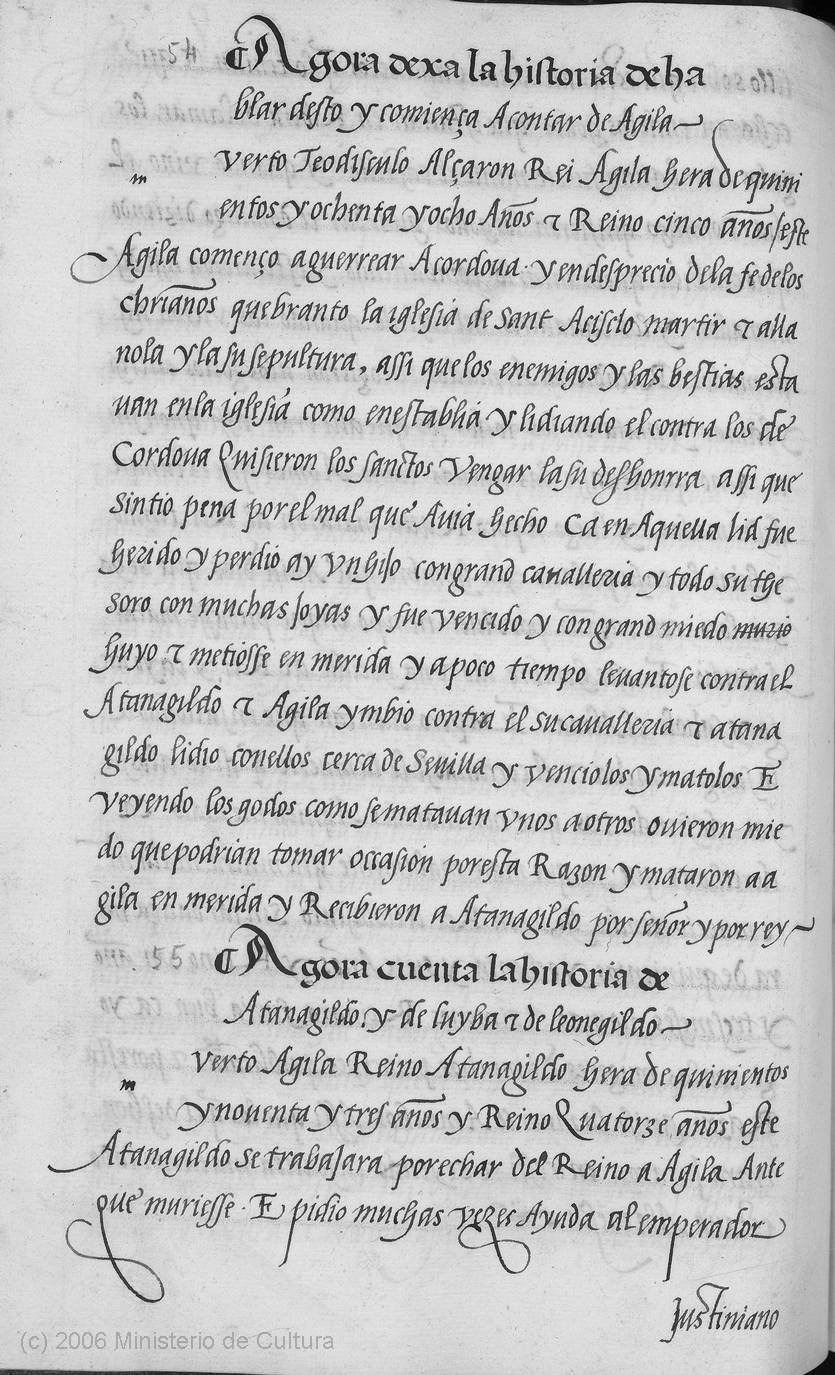 54 ¶ Agora dexa la historia de ha
blar desto y comiença Acontar de Agila
m verto Teodisculo Alçaron Rei Agila hera de quini
entos y ochenta y ocho Años τ Reino cinco años / este
Agila començo a guerrear Acordova · y en desprecio de la fe de los
chrianos quebranto la iglesia de sant Acisclo martir τ alla
nola y la su sepultura, assi que los enemigos y las bestias esta
uan en la iglesia como en establia y lidiando el contra los de
Cordova Quisieron los sanctos Vengar la su deshonrra assi que
sintio pena por el mal que Auia hecho Ca en Aquella lid fue
herido y perdio ay vn hijo con grand caualleria y todo su the
soro con muchas joyas y fue vencido y con grand miedo murio
huyo τ metiosse en merida y a poco tiempo leuantose contra el
Atanagildo τ Agila ymbio contra el su caualleria τ atana
gildo lidio con ellos cerca de Sevilla y venciolos y matolos E
veyendo los godos como se matauan vnos a otros ouieron mie
do que podrian tomar occasion por esta Razon y mataron a a
gila en merida y Recibieron a Atanagildo por señor y por rey
55 ¶ Agora cuenta la historia de
Atanagildo. y de luyba τ de leonegildo
m verto Agila Reino Atanagildo hera de quinientos
y nouenta y tres años y Reino Quatorze años este
Atanagildo se trabajara por echar del Reino a Agila Ante
que muriesse · E pidio muchas vezes Ayuda al emperador
Justiniano
(c) 2006 Ministerio de Cultura